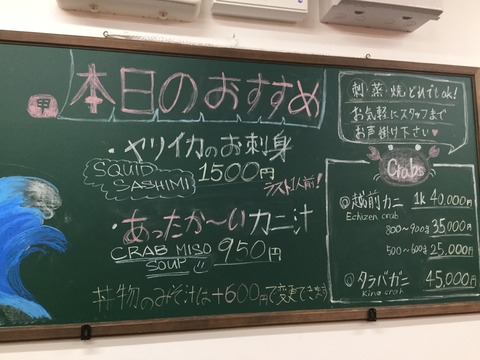 甲 本日のおすすめ
・ヤリイカのお刺身
SQUID SASHIMI 1500円
ラスト1人前!
・あったか〜いカニ汁
CRAB MISO SOUP 950円
丼物のみそ汁は+600円で変更できます
刺・蒸・焼どれでもok!
お気軽にスタッフまで
お声掛け下さい♥
Crabs
越前カニ 1k 40,000円
Echizen crab
800〜900g 35,000円
500〜600g 25,000円
タラバガニ 45,000円
King crab